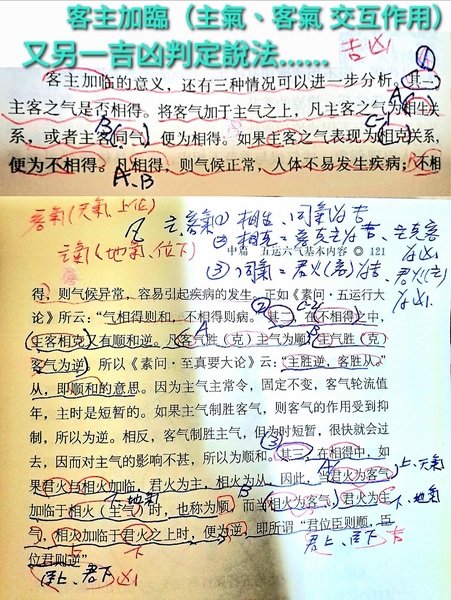 客主加臨（主氣、客氣 交互作用）
又另一吉凶判定說法......
吉凶
客主加临的意义，还有三种情况可以进一步分析，其一，
主客之气是否相得。将客气加于主气之上，凡主客之气为相生关
系，或者主客同气，便为相得。如果主客之气表现为相克关系，
便为不相得。凡相得，则气候正常，人体不易发生疾病；不相
A、B
客氣(天氣、上位)
主氣(地氣、位下)
凡主、客氣① 相生、同氣為吉
② 相克=客克主為吉、主克客為凶
中篇 五运六气基本内容 ◎ 121
③同氣=君火(客)為吉、君火(主)為凶
得，则气候异常，容易引起疾病的发生。正如《素问·五运行大
论》所云：“气相得则和，不相得则病。”其二，在不相得之中，
主客相克又有顺和逆。凡客气胜（克）主气为顺，主气胜（克）
客气为逆。所以《素问·至真要大论》云：“主胜逆，客胜从。”
从，即顺和的意思。因为主气主常令，固定不变，客气轮流值
年，主时是短暂的。如果主气制胜客气，则客气的作用受到抑
制，所以为逆。相反，客气制胜主气，但为时短暂，很快就会过
去，因而对主气的影响不甚，所以为顺和。其三，在相得中，如
果君火与相火加临，君火为主，相火为从，因此，当君火为客气，
上、天氣
下地氣
加临于相火（主气）时，也称为顺，而当相火为客气，君火为主
下、地氣
气，相火加临于君火之上时，便为逆，即所谓“君位臣则顺，臣
上
下
君上、臣下 吉
位君则逆”
臣上、君下 凶